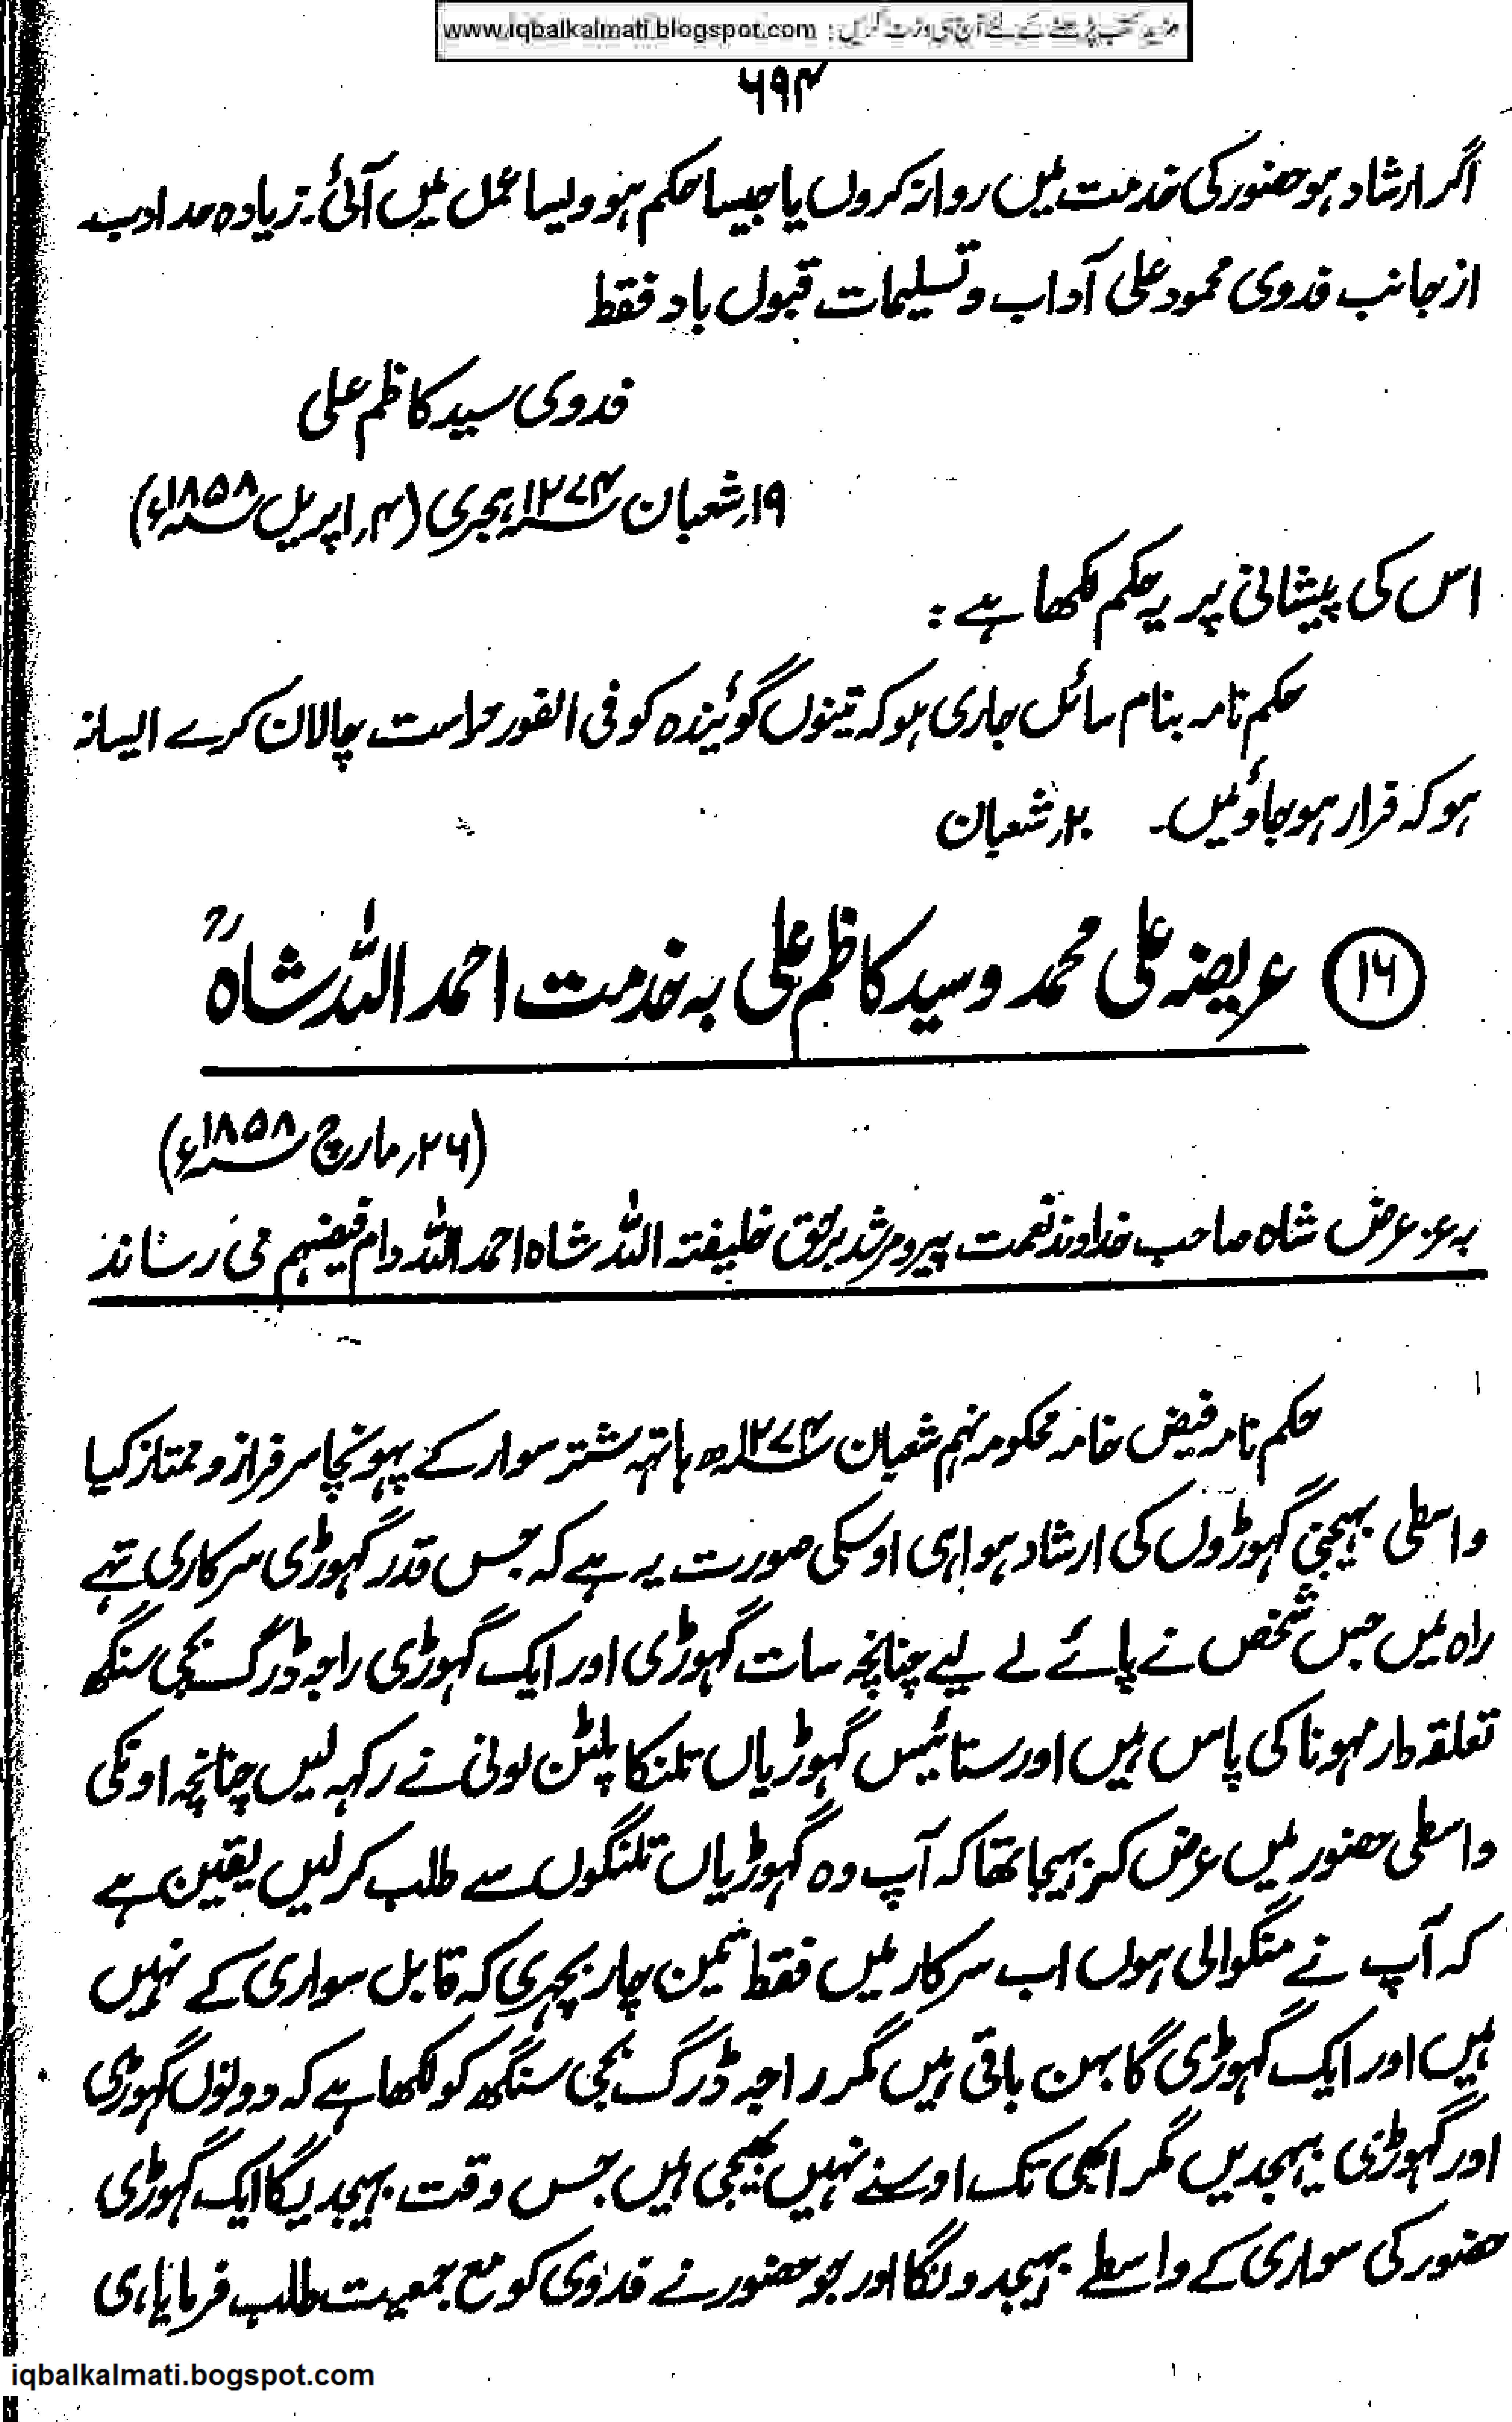 www.iqbalkalmati.blogspot.com : مزید کتب پڑھنے کے لئے آج ہی وزٹ کریں
۶۹۴
اگر ارشاد ہو حضور کی خدمت میں روانہ کروں یا جیسا حکم ہو ویسا عمل میں آئی۔ زیادہ حد ادب
از جانب فدوی محمود علی آداب و تسلیمات قبول باد فقط
فدوی سید کاظم علی
۱۹؍ شعبان ۱۲۷۴؁ ہجری (۴؍ اپریل ۱۸۵۸؁ء)
اس کی پیشانی پر یہ حکم لکھا ہے :
حکم نامہ بنام سائل جاری ہو کہ تینوں گوئیندہ کو فی الفور حراست چالان کرے ایسا نہ
ہو کہ فرار ہو جاوئیں۔ ۲۰؍ شعبان
۱۶ عریضہ علی محمد و سید کاظم علی بہ خدمت احمد اللہ شاہؒ
(۲۶؍ مارچ ۱۸۵۸؁ء)
بہ عز عرض شاہ صاحب خداوند نعمت پیر و مرشد برحق خلیفتہ اللہ شاہ احمد اللہ دام فیضہم می رساند
حکم نامہ فیض خامہ محکومہ نہم شعبان ۱۲۷۴؁ھ ہاتہہ شتر سوار کے پہونچا سرفراز و ممتاز کیا
واسطی بہیجنی گہوڑوں کی ارشاد ہوا ہی اوسکی صورت یہ ہے کہ جس قدر گہوڑی سرکاری تہے
راہ میں جس شخص نے پائے لے لیے چنانچہ سات گہوڑی اور ایک گہوڑی راجہ ڈرگ بجی سنگھ
تعلقہ دار مہونا کی پاس ہیں اور ستائیس گہوڑیاں تلنکا پلٹن لونی نے رکہہ لیں چنانچہ اونکی
واسطی حضور میں عرض کر بہیجا تھا کہ آپ وہ گہوڑیاں تلنگوں سے طلب کر لیں یقین ہے
کہ آپ نے منگوالی ہوں اب سرکار میں فقط تین چار بچہری کہ قابل سواری کے نہیں
ہیں اور ایک گہوڑی گابہن باقی ہیں مگر راجہ ڈرگ بجی سنگھ کو لکھا ہے کہ دونوں گہوڑی
اور گہوڑی بہیجدیں مگر ابھی تک اوسنے نہیں بھیجی ہیں جس وقت بہیجدیگا ایک گہوڑی
حضور کی سواری کے واسطے بہیجدونگا اور جو حضور نے فدوی کو مع جمعیت طلب فرمایا ہی
iqbalkalmati.bogspot.com